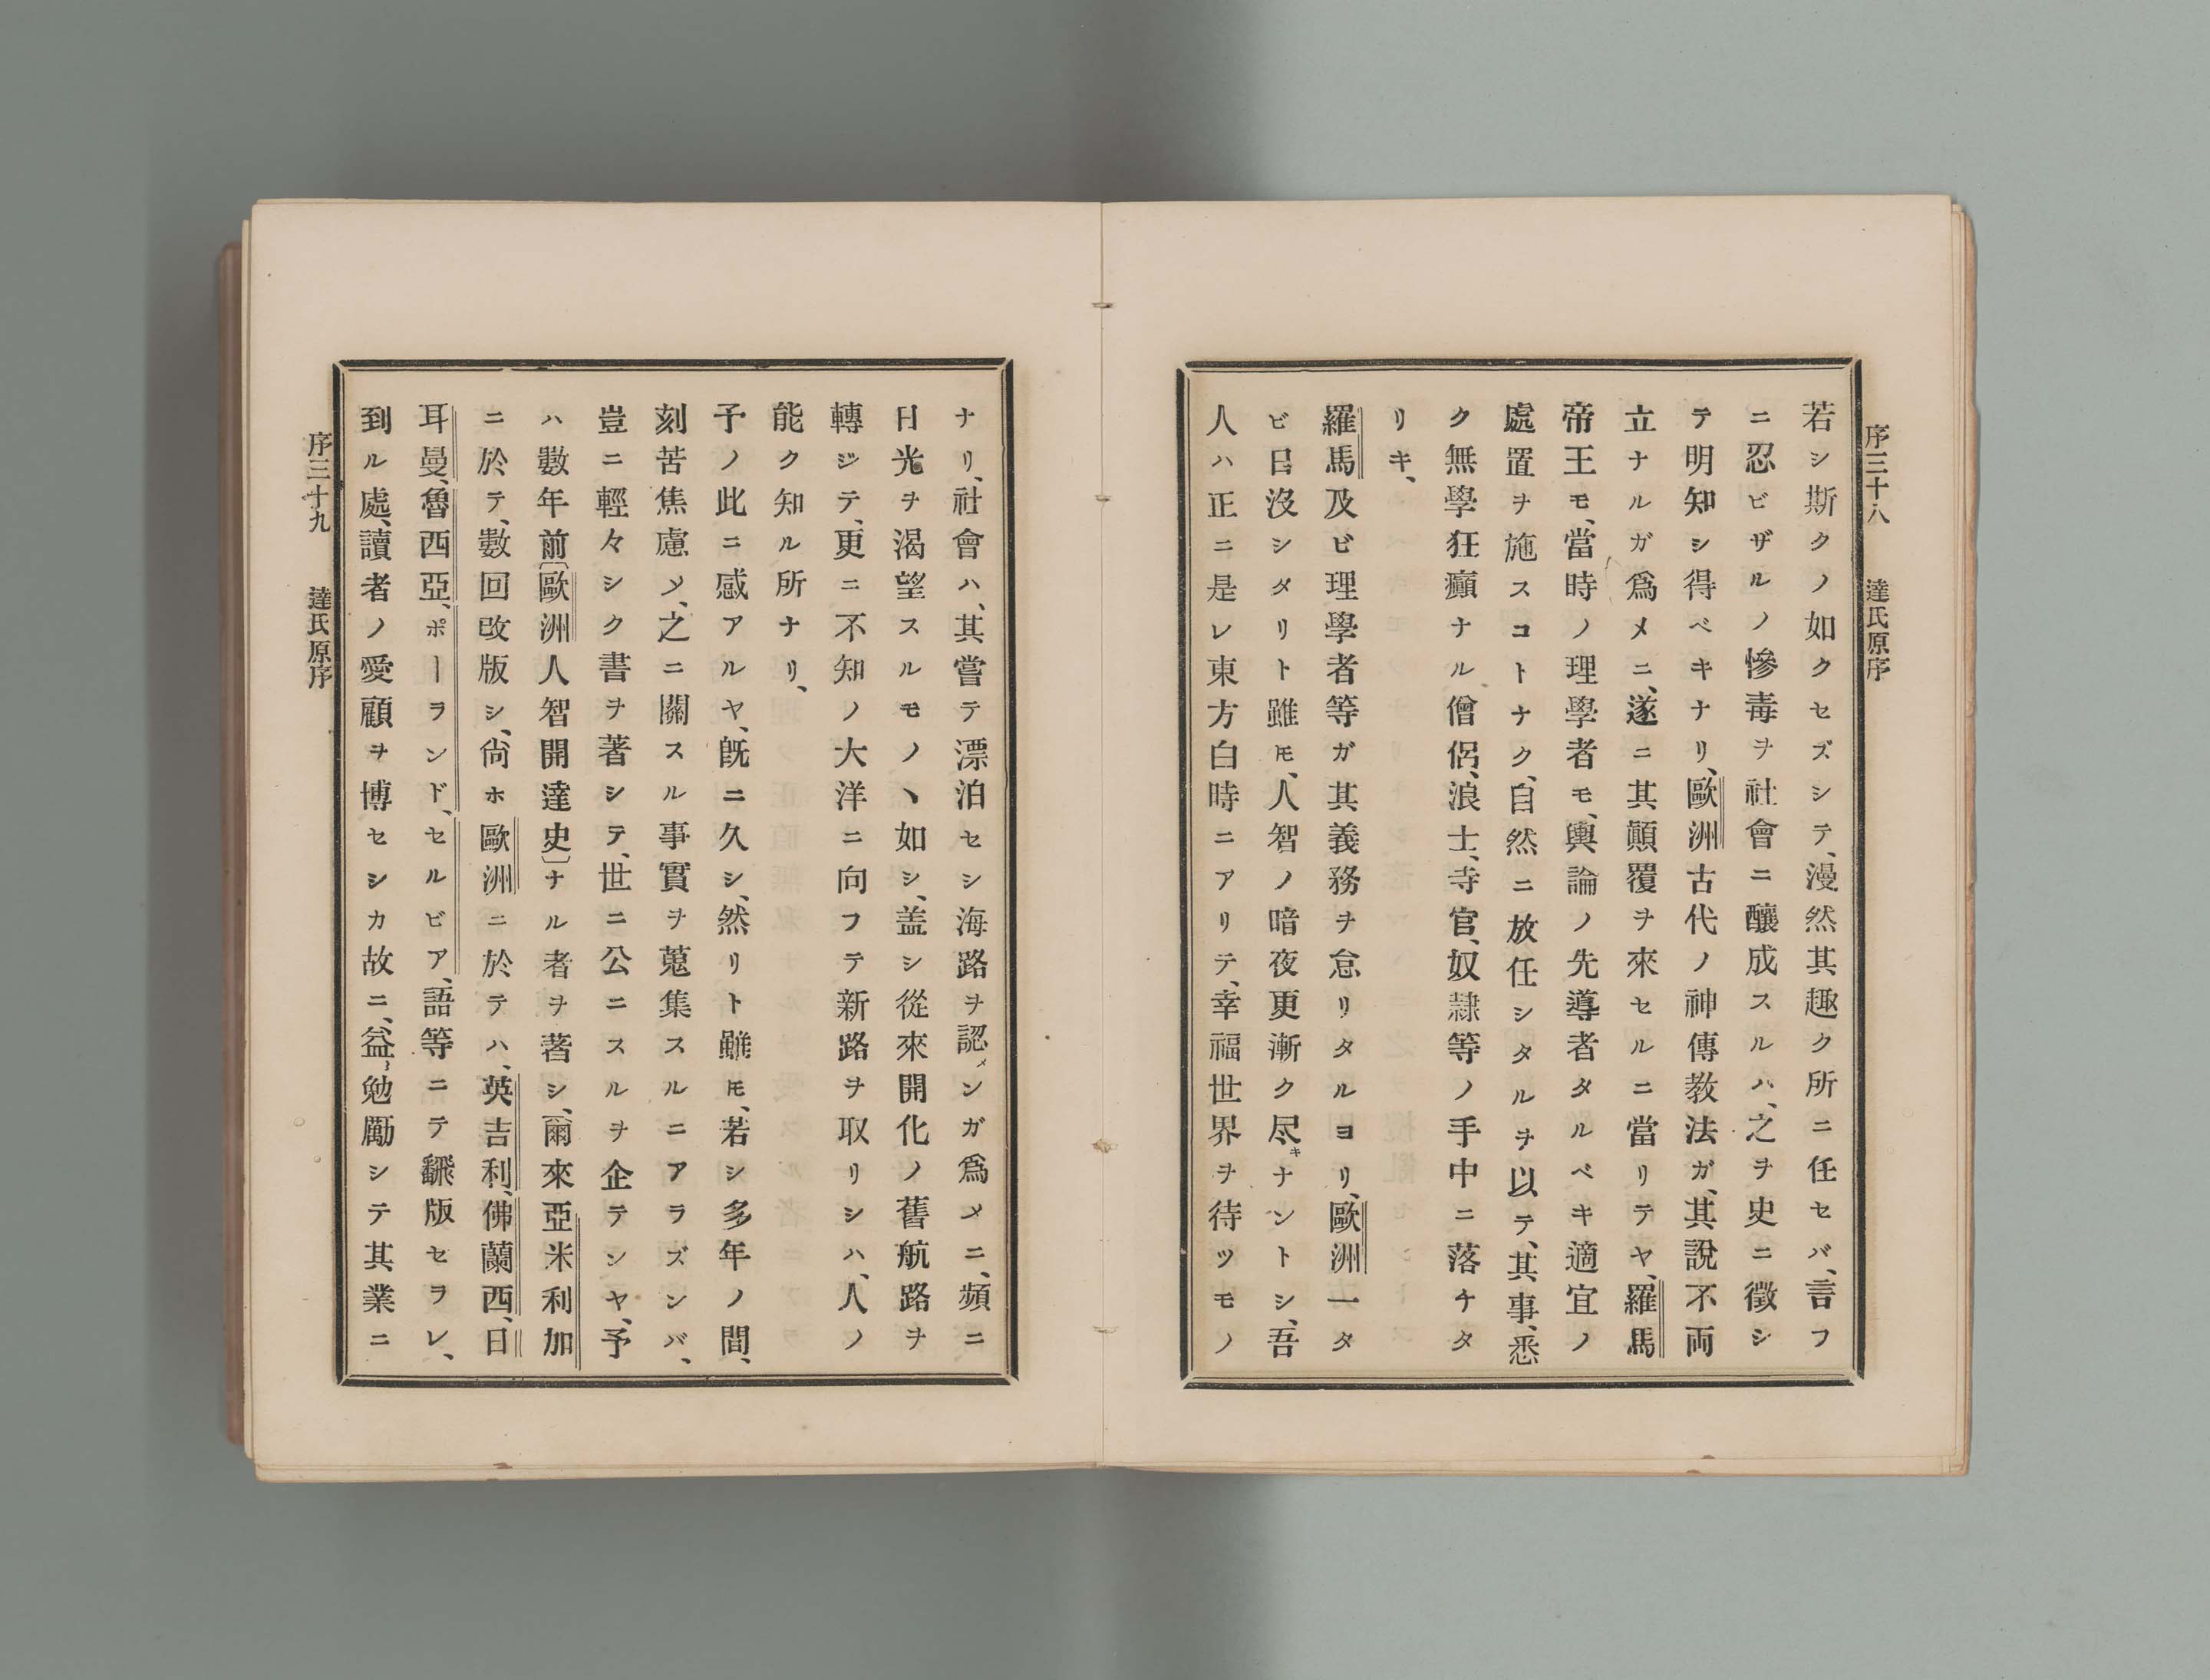 序三十八　達氏原序
若シ斯クノ如クセズシテ、漫然其趣ク所ニ任セバ、言フ
ニ忍ビザルノ慘毒ヲ社會ニ釀成スルハ、之ヲ史ニ徵シ
テ明知シ得ベキナリ、歐洲古代ノ神傳敎法ガ、其說不両
立ナルガ爲メニ、遂ニ其顚覆ヲ來セルニ當リテヤ、羅馬
帝王モ、當時ノ理學者モ、輿論ノ先導者タルベキ適宜ノ
處置ヲ施スコトナク、自然ニ放任シタルヲ以テ、其事、悉
ク無學狂癲ナル僧侶、浪士、寺官、奴隷等ノ手中ニ落チタ
リキ、
羅馬及ビ理學者等ガ其義務ヲ怠リタルヨリ、歐洲一タ
ビ日沒シタリト雖モ、人智ノ暗夜更漸ク尽キナントシ、吾
人ハ正ニ是レ東方白時ニアリテ、幸福世界ヲ待ツモノ
ナリ、社會ハ、其嘗テ漂泊セシ海路ヲ認メンガ爲メニ、頻ニ
日光ヲ渴望スルモノヽ如シ、盖シ從來開化ノ舊航路ヲ
轉ジテ、更ニ不知ノ大洋ニ向フテ新路ヲ取リシハ、人ノ
能ク知ル所ナリ、
予ノ此ニ感アルヤ、旣ニ久シ、然リト雖モ、若シ多年ノ間、
刻苦焦慮メ、之ニ關スル事實ヲ蒐集スルニアラズンバ、
豈ニ輕々シク書ヲ著シテ、世ニ公ニスルヲ企テンヤ、予
ハ數年前〔歐洲人智開達史〕ナル者ヲ著シ、爾來亞米利加
ニ於テ、數回改版シ、尙ホ歐洲ニ於テハ、英吉利、佛蘭西、日
耳曼、魯西亞、ポーランド、セルビア、語等ニテ飜版セラレ、
到ル處、讀者ノ愛顧ヲ博セシカ故ニ、益、勉勵シテ其業ニ
序三十九　達氏原序